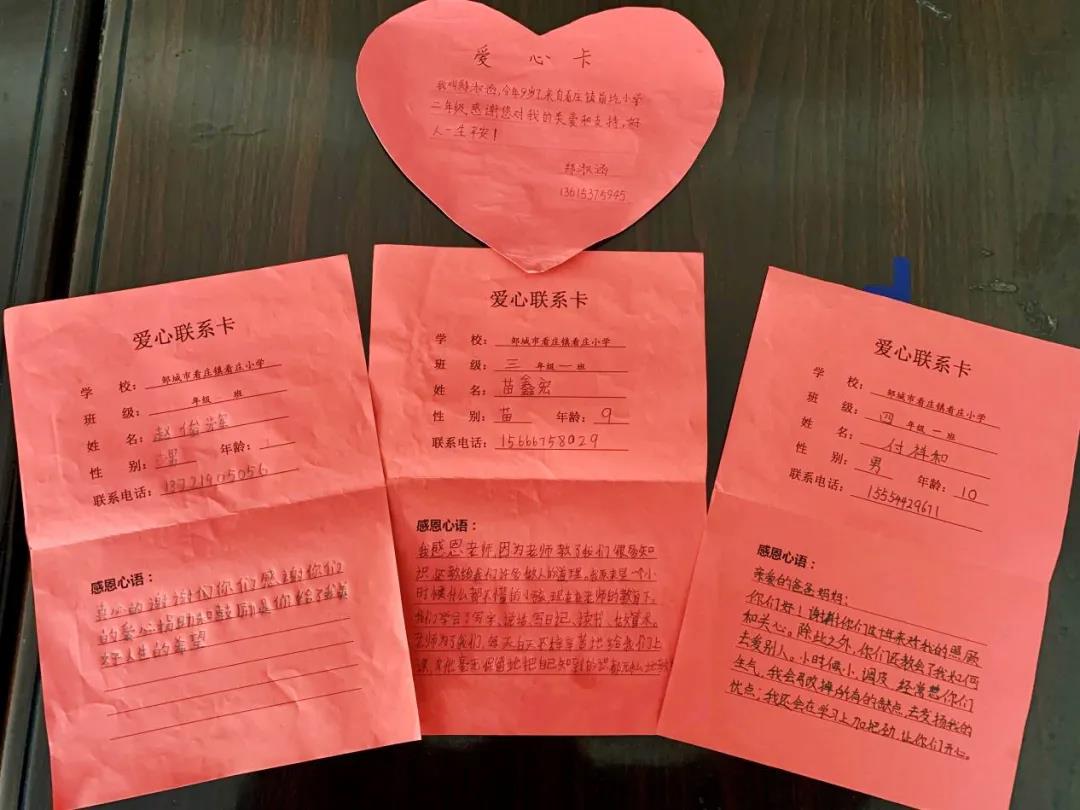 爱 心 卡
我叫郑淑涵,今年9岁了,来自看庄镇前圪小学
二年级,感谢您对我的关爱和支持,好
人一生平安!
郑淑涵
13615375945
爱心联系卡
学 校:邹城市看庄镇看庄小学
班 级: 年级 班
姓 名:赵
性 别:男 年龄:
联系电话:13721905056
感恩心语:
真心的谢谢们你们感谢你们
的爱心捐助和鼓励是你给了我美
好人生的希望
爱心联系卡
学 校:邹城市看庄镇看庄小学
班 级:三年级一班
姓 名:苗鑫宏
性 别:苗 年龄:9
联系电话:15666758029
感恩心语:
我感恩老师,因为老师教了我们很多知
识,还教给我们许多做人的道理。我原来是一个小
时候什么都不懂的小孩,现在在老师的教育下,
我们学会了写字、说话、写日记、读书、做算术。
老师为了我们,每天白天不辞辛苦地给我们上
课,老师毫无保留地把自己知道的知识都无私地
爱心联系卡
学 校:邹城市看庄镇看庄小学
班 级:四年级一班
姓 名:付祥和
性 别:男 年龄:10
联系电话:15554429671
感恩心语:
亲爱的爸爸妈妈:
你们好!谢谢你们这十年来对我的照顾
和关心。除此之外,你们还教会了我如何
去爱别人。小时候小,调皮,经常惹你们
生气,我会再改掉所有的缺点,去发扬我的
优点;我还会在学习上加把劲,让你们开心。